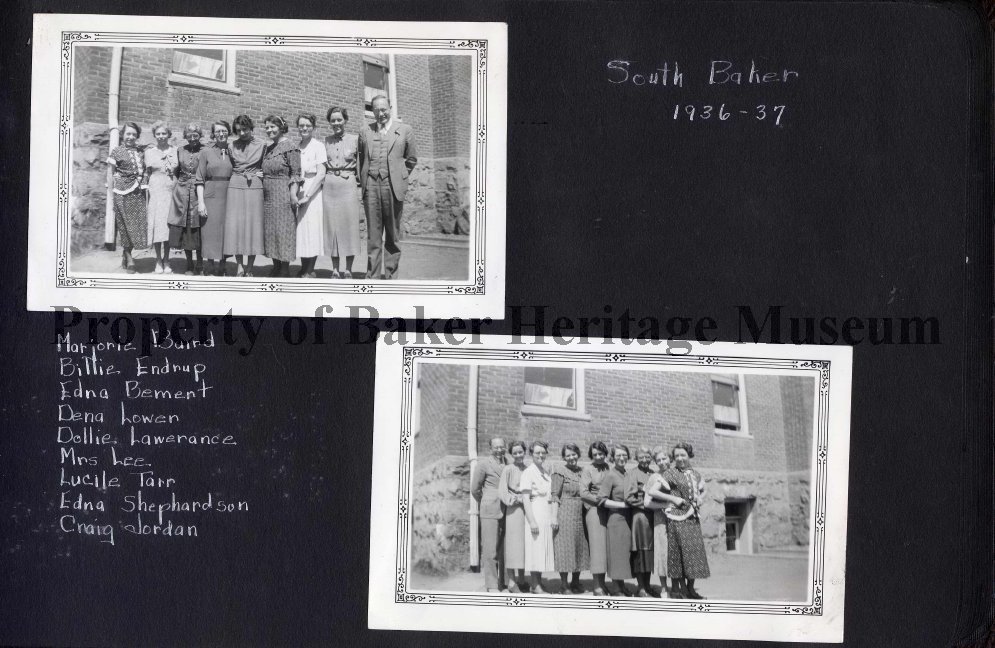 South Baker
1936-37
Property of Baker Heritage Museum
Marjorie Baird
Billie Endrup
Edna Bement
Dena Lowen
Dollie Lawerance
Mrs Lee
Lucile Tarr
Edna Shephardson
Craig Jordan